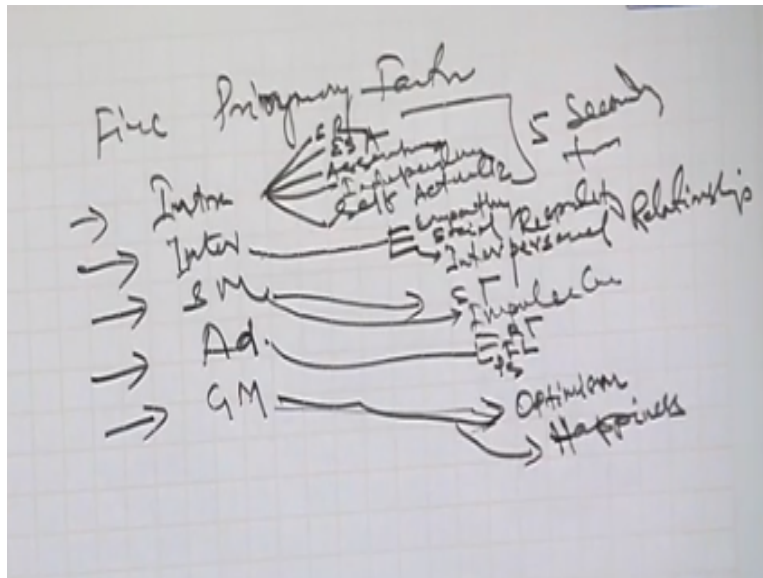 Five Primary Factor
SR
ESA
Assertiveness
Independency
Self Actualiz
5 Seconds
Intra
Inter
Empathy
Social Responsibility
Interpersonal Relationship
SM
ST
Impulse Con
Ad.
RT
FL
PS
GM
Optimism
Happiness